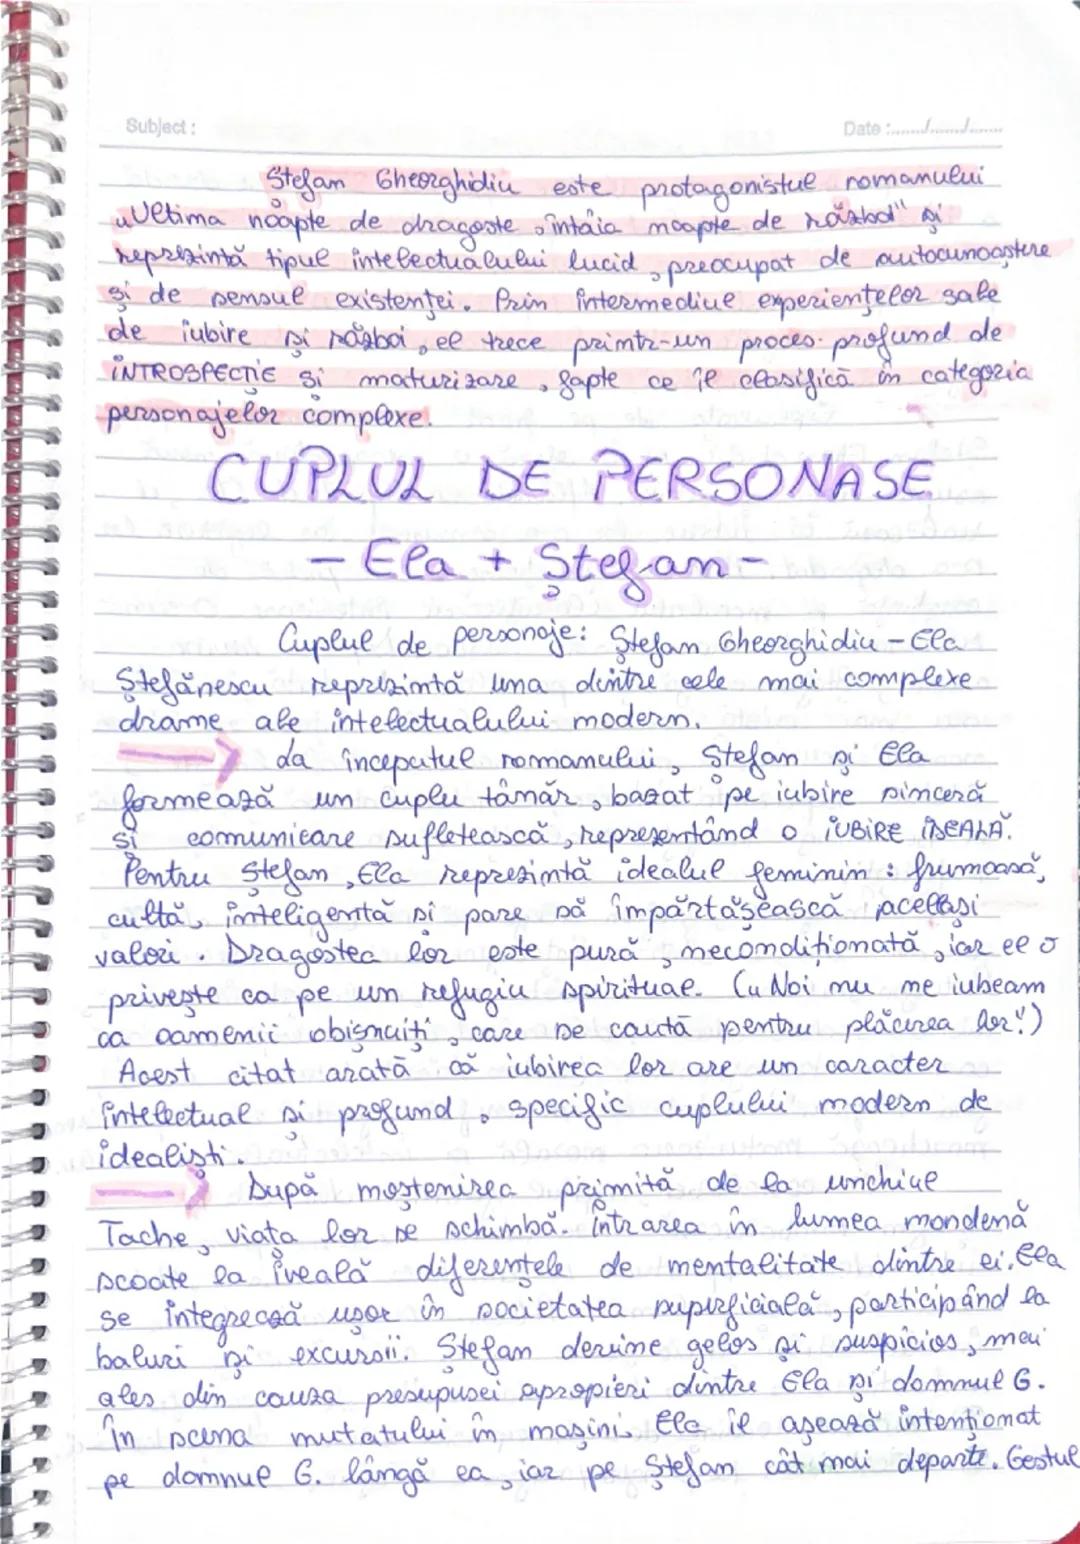 Subject:
Date:....../....../......
Ștefan Gheorghidiu este protagonistul romanului
„Ultima noapte de dragoste, întâia noapte de război" și
reprezintă tipul intelectualului lucid, preocupat de autocunoaștere
și de sensul existenței. Prin intermediul experiențelor sale
de iubire și război, el trece printr-un proces profund de
INTROSPECȚIE și maturizare, fapte ce îl clasifică în categoria
personajelor complexe.
CUPLUL DE PERSONASE
- Ela + Ștefan -
Cuplul de personaje: Ștefan Gheorghidiu - Ela
Ștefănescu reprezintă una dintre cele mai complexe
drame ale intelectualului modern.
La începutul romanului, Ștefan și Ela
formează un cuplu tânăr, bazat pe iubire sinceră
și comunicare sufletească, reprezentând o IUBIRE IDEALĂ.
Pentru Ștefan, Ela reprezintă idealul feminin: frumoasă,
cultă, inteligentă și pare să împărtășească aceleași
valori. Dragostea lor este pură, necondiționată, iar el o
privește ca pe un refugiu spiritual. („Noi nu ne iubeam
ca oamenii obișnuiți, care se caută pentru plăcerea lor")
Acest citat arată că iubirea lor are un caracter
intelectual și profund, specific cuplului modern de
idealiști.
După moștenirea primită de la unchiul
Tache, viața lor se schimbă. Intrarea în lumea mondenă
scoate la iveală diferențele de mentalitate dintre ei. Ela
se integrează ușor în societatea superficială, participând la
baluri și excursii. Ștefan devine gelos și suspicios, mai
ales din cauza presupusei apropieri dintre Ela și domnul G.
În scena mutatului în mașini, Ela îl așează intenționat
pe domnul G. lângă ea, iar pe Ștefan cât mai departe. Gestul